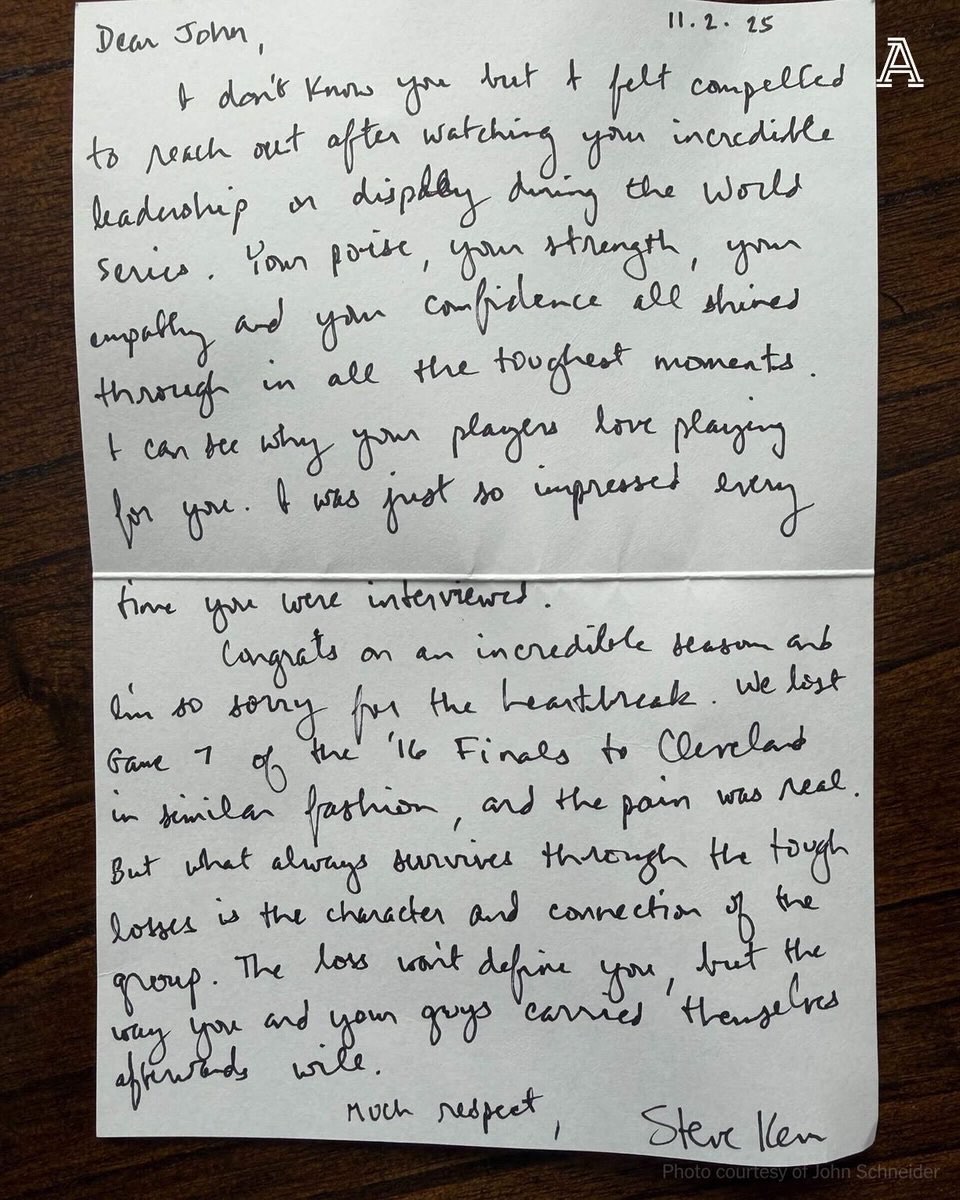 11.2.25
Dear John,
A
I don't know you but I felt compelled
to reach out after watching your incredible
leadership on display during the World
Series. Your poise, your strength, your
empathy and your confidence all shined
through in all the toughest moments.
I can see why your players love playing
for you. I was just so impressed every
time you were interviewed.
Congrats on an incredible season and
I'm so sorry for the heartbreak. We lost
Game 7 of the '16 Finals to Cleveland
in similar fashion, and the pain was real.
But what always survives through the tough
losses is the character and connection of the
group. The loss won't define you, but the
way you and your guys carried themselves
afterwards will.
Much respect,
Steve Kerr
Photo courtesy of John Schneider